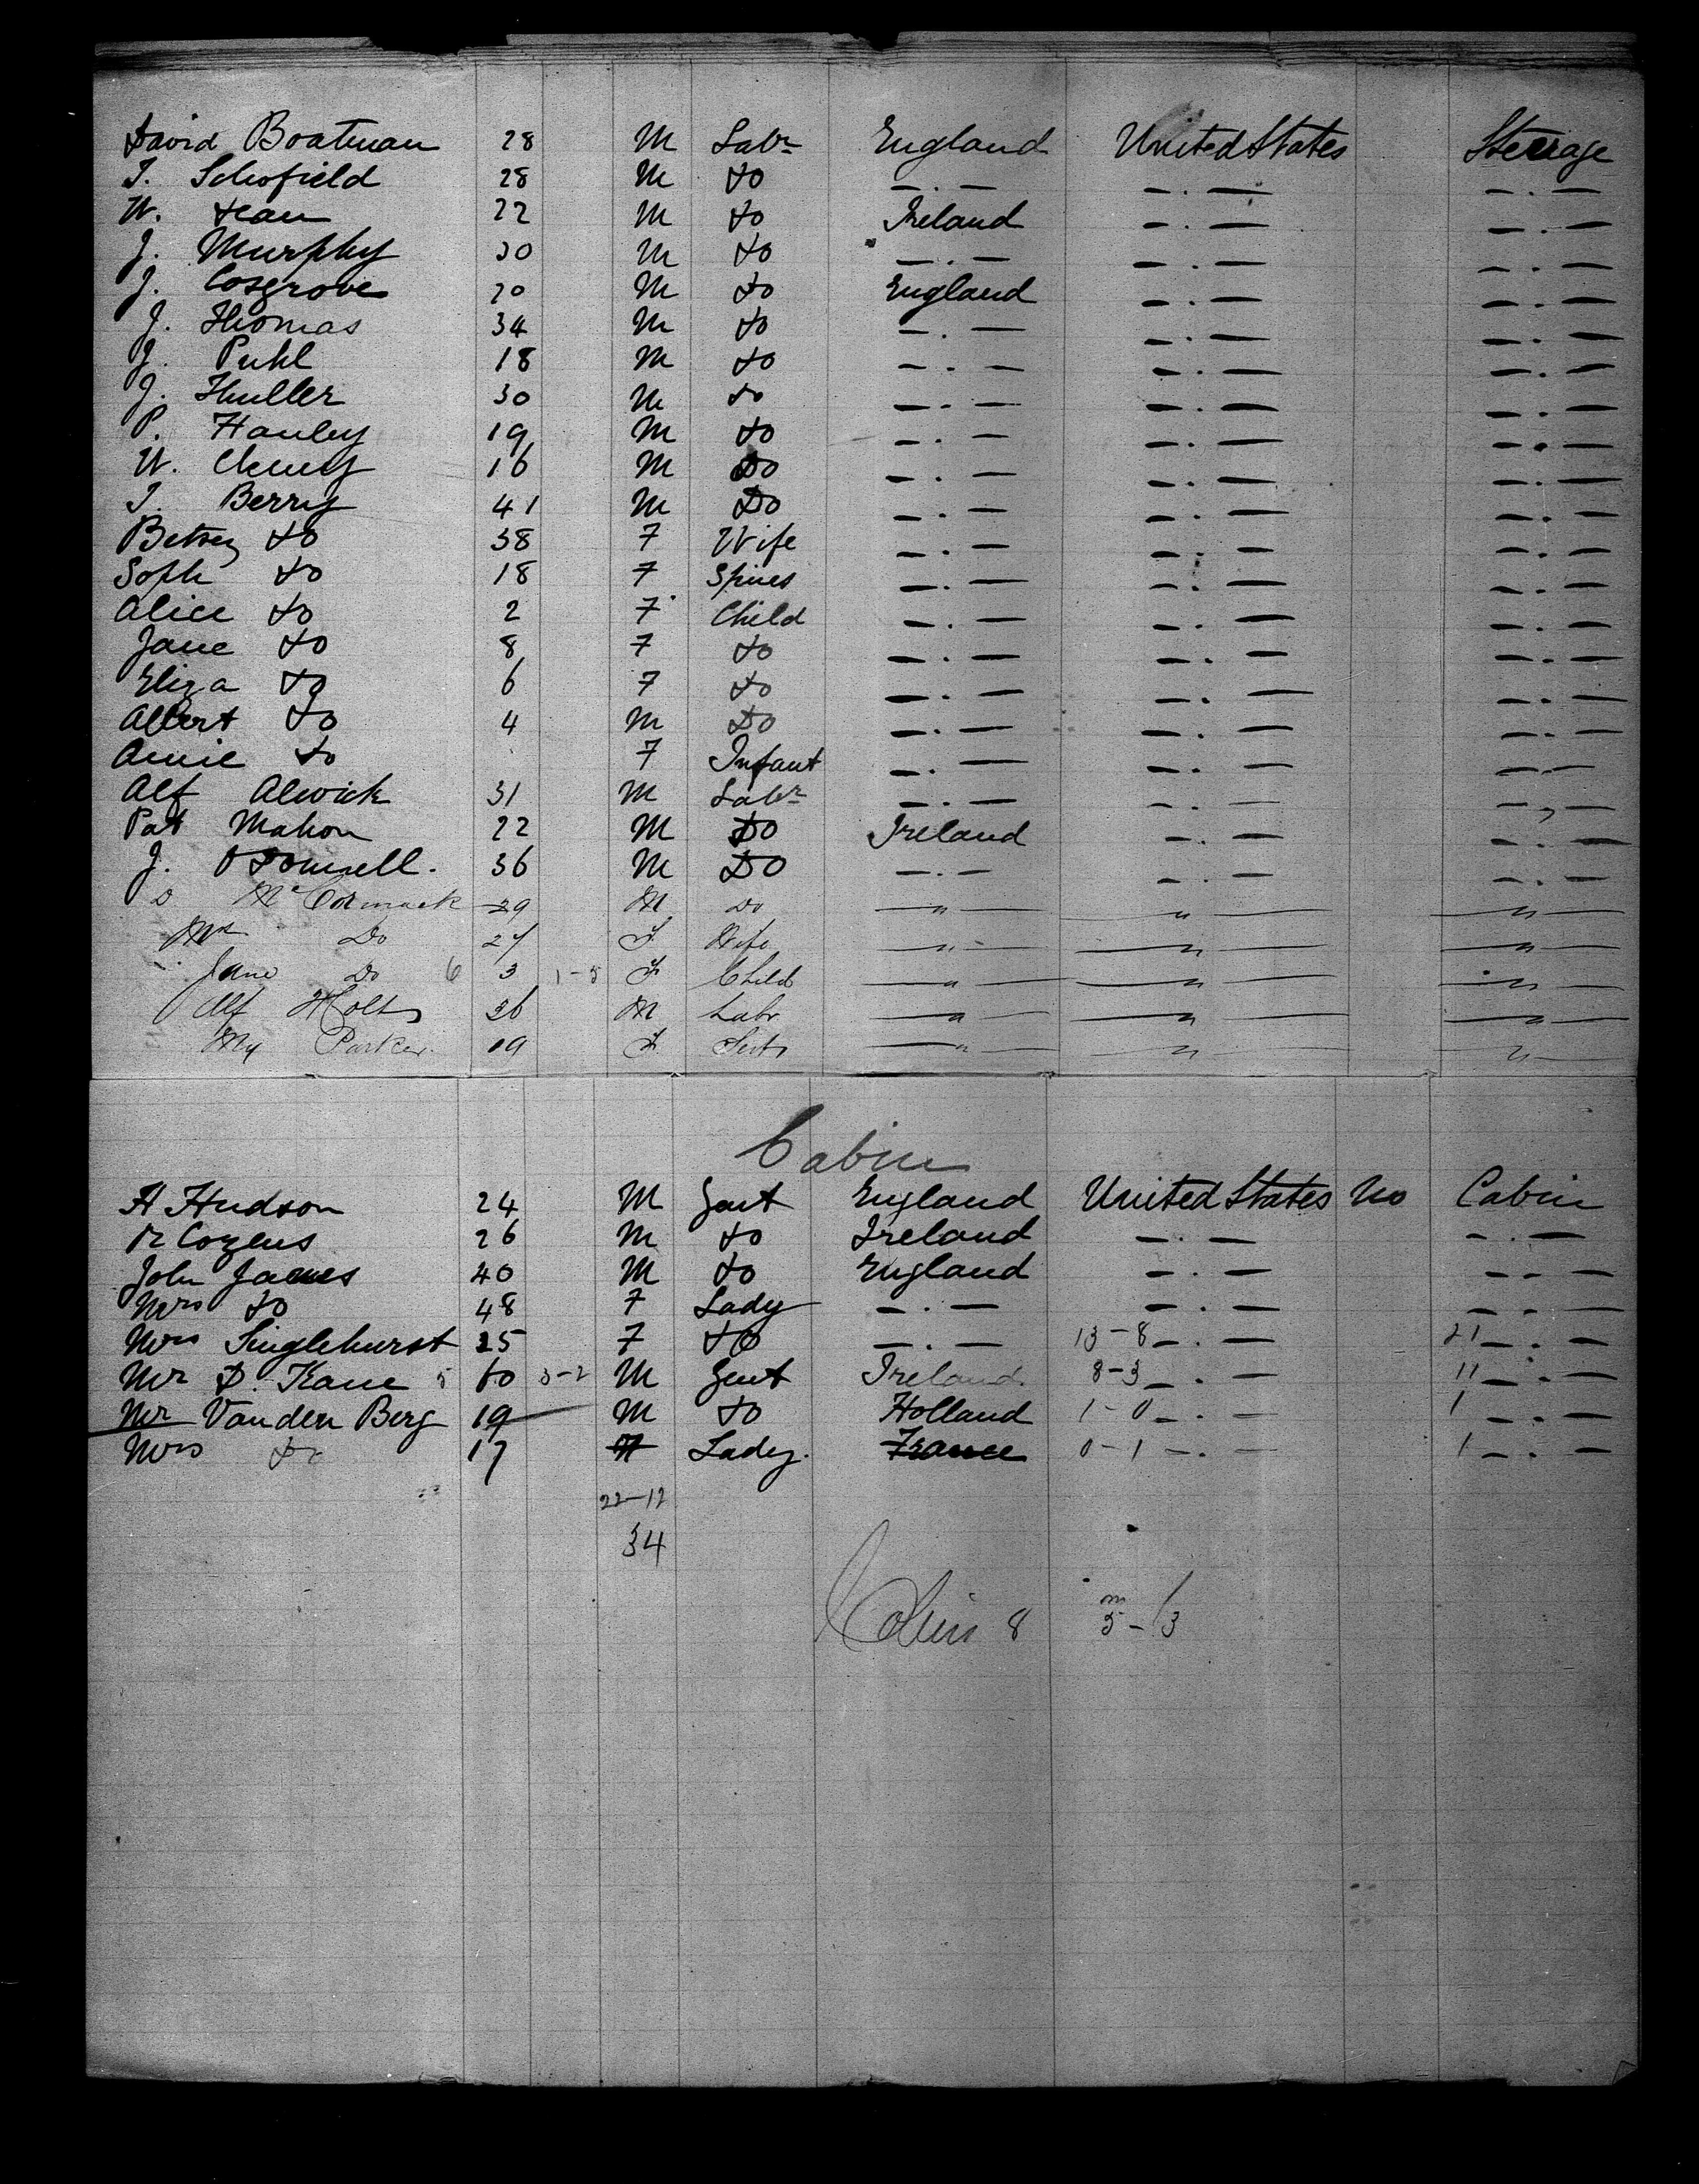 David Boatman 28 M Labr England United States Steerage
T. Schofield 28 M do —.— —.— —.—
W. Dean 22 M do Ireland —.— —.—
J. Murphy 30 M do —.— —.— —.—
J. Cosgrove 20 M do England —.— —.—
J. Thomas 34 M do —.— —.— —.—
J. 18 M do —.— —.— —.—
J. 30 M do —.— —.— —.—
P. Hanley 19 M do —.— —.— —.—
W. 16 M Do —.— —.— —.—
T. Berry 41 M Do —.— —.— —.—
Betsey do 38 F Wife —.— —.— —.—
Soph do 18 F Spins —.— —.— —.—
Alice do 2 F Child —.— —.— —.—
Jane do 8 F do —.— —.— —.—
Eliza do 6 F do —.— —.— —.—
Albert do 4 M Do —.— —.— —.—
Annie do F Infant —.— —.— —.—
Alf Alwick 31 M Labr —.— —.— —.—
Pat Mahon 22 M Do Ireland —.— —.—
J. O'Donnell. 36 M Do —.— —.— —.—
D McCormack 29 M Do — " — — " — — " —
Mrs Do 27 F Wife — " — — " — — " —
Jane Do 6 3 1-5 F Child — " — — " — — " —
Alf Holt 26 M Labr — " — — " — — " —
My Parker. 19 F Servt — " — — " — — " —
Cabin
H Hudson 24 M Gent England United States No Cabin
R Cozens 26 M do Ireland —.— —.—
John James 40 M do England —.— —.—
Mrs do 48 F Lady —.— —.— —.—
Mrs Singlehurst 25 F do —.— 13-8 —.— 21 —.—
Mr D. Kane 5 60 3-2 M Gent Ireland. 8-3 —.— 11 —.—
Mr Vanden Berg 19 M do Holland 1-0 —.— 1 —.—
Mrs Do 17 F Lady. France 0-1 —.— 1 —.—
22-12
34
Cabin 8 m 5-/3